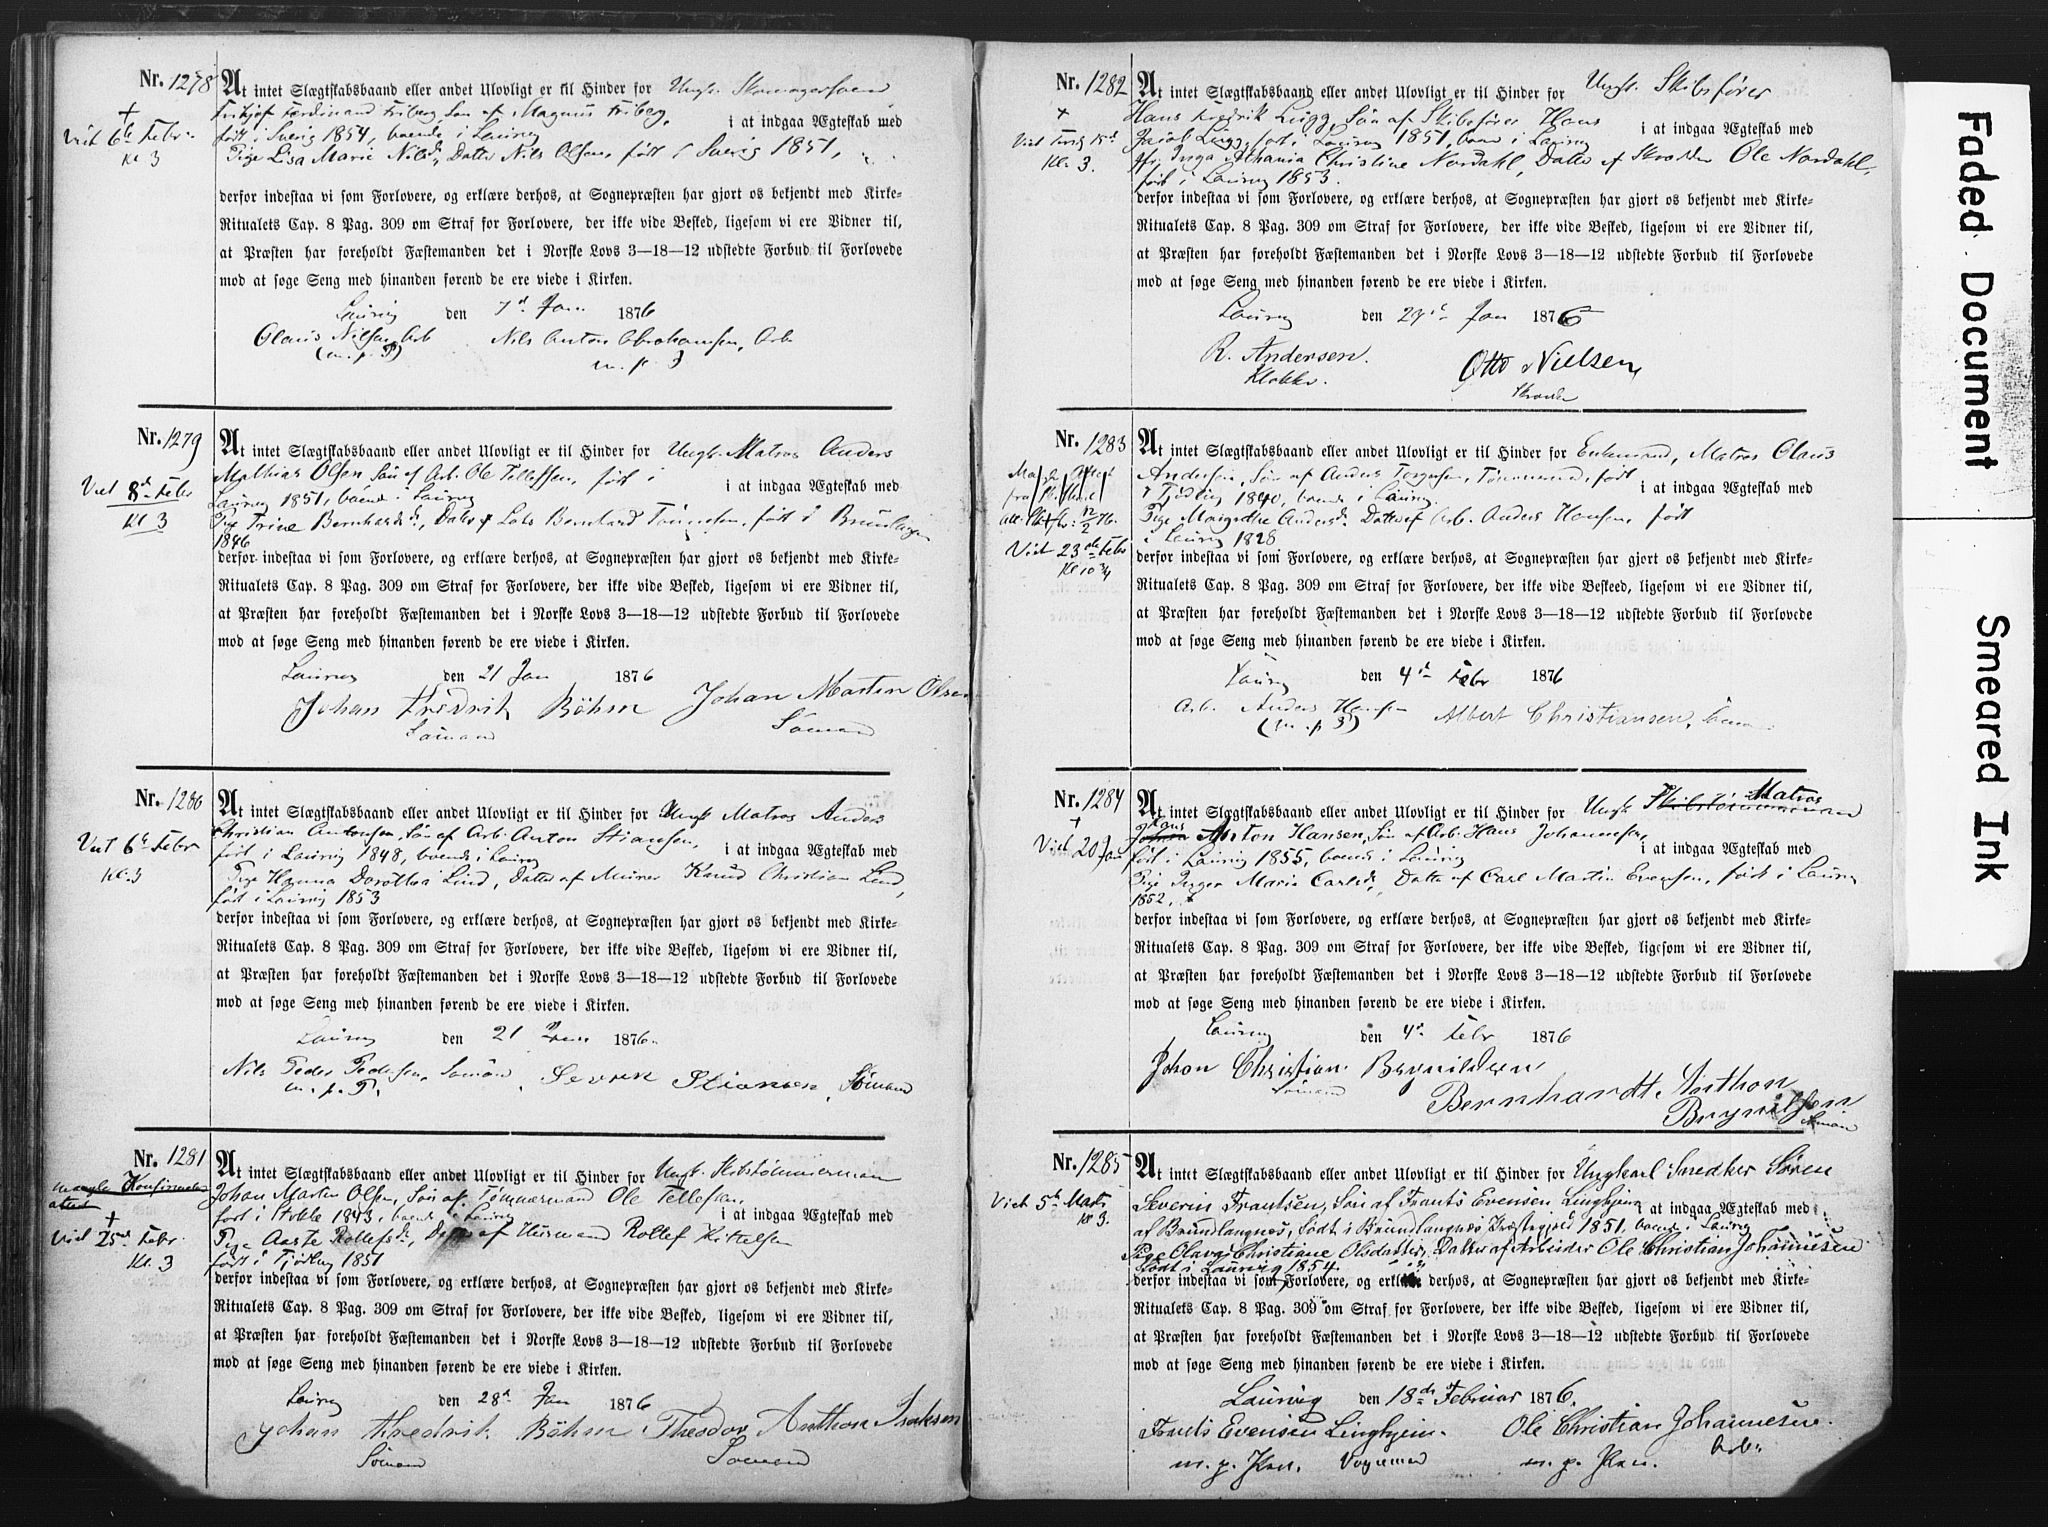 Nr. 1278
At intet Slægtskabsbaand eller andet Ulovligt er til Hinder for Ungk. Skomagersvend
Frithjof Ferdinand Friberg, Søn af Magnus Friberg,
født i Sverig 1854, boende i Laurvig i at indgaa Ægteskab med
Pige Lisa Marie Nilsd., Datter Nils Olsen, født i Sverig 1851,
+
Viet 6te Febr.
Kl 3
derfor indestaa vi som Forlovere, og erklære derhos, at Sognepræsten har gjort os bekjendt med Kirke-
Ritualets Cap. 8 Pag. 309 om Straf for Forlovere, der ikke vide Besked, ligesom vi ere Vidner til,
at Præsten har foreholdt Fæstemanden det i Norske Lovs 3—18—12 udstedte Forbud til Forlovede
mod at søge Seng med hinanden førend de ere viede i Kirken.
Laurvig den 7d Jan 1876
Olaus Nilsen Arb Nils Anton Abrahamsen, Arb
(m. p. P) m. p. P
Nr. 1279
At intet Slægtskabsbaand eller andet Ulovligt er til Hinder for Ungk. Matros Anders
Mathias Olsen Søn af Arb. Ole Tellefsen, født i
Laurvig 1851, boende i Laurvig i at indgaa Ægteskab med
Pige Trine Bernhardsd., Datter af Bernhard født i Brunlagn
1846
Viet 8d Febr
Kl 3
derfor indestaa vi som Forlovere, og erklære derhos, at Sognepræsten har gjort os bekjendt med Kirke-
Ritualets Cap. 8 Pag. 309 om Straf for Forlovere, der ikke vide Besked, ligesom vi ere Vidner til,
at Præsten har foreholdt Fæstemanden det i Norske Lovs 3—18—12 udstedte Forbud til Forlovede
mod at søge Seng med hinanden førend de ere viede i Kirken.
Laurvig den 21 Jan 1876
Johan Fredrik Böhm Johan Martin Olsen
Sømand Sømand
Nr. 1280
At intet Slægtskabsbaand eller andet Ulovligt er til Hinder for Ungk Matros Anders
Christian Antonsen, Søn af Arb. Anton Stiansen,
født i Laurvig 1848, boende i Laurvig i at indgaa Ægteskab med
Pige Hanna Dorothea Lind, Datter af Murer Knud Christian Lind,
født i Laurvig 1853
Viet 6te Febr
Kl. 3
derfor indestaa vi som Forlovere, og erklære derhos, at Sognepræsten har gjort os bekjendt med Kirke-
Ritualets Cap. 8 Pag. 309 om Straf for Forlovere, der ikke vide Besked, ligesom vi ere Vidner til,
at Præsten har foreholdt Fæstemanden det i Norske Lovs 3—18—12 udstedte Forbud til Forlovede
mod at søge Seng med hinanden førend de ere viede i Kirken.
Laurvig den 21 Jan 1876
Nils Peder Pedersen, Sømand Severin Stiansen, Sømand
m. p. P.
Nr. 1281
At intet Slægtskabsbaand eller andet Ulovligt er til Hinder for Ungk. Skibstømmermand
Johan Martin Olsen, Søn af Tømmermand Ole Tellefsen,
født i Stokke 1843, boende i Laurvig i at indgaa Ægteskab med
Pige Aaste Rollefsd., Datter af Husmand Rollef Kittelsen
født i Tjølling 1851
mangler Konfirmations
attest
+
Viet 25de Febr.
Kl. 3
derfor indestaa vi som Forlovere, og erklære derhos, at Sognepræsten har gjort os bekjendt med Kirke-
Ritualets Cap. 8 Pag. 309 om Straf for Forlovere, der ikke vide Besked, ligesom vi ere Vidner til,
at Præsten har foreholdt Fæstemanden det i Norske Lovs 3—18—12 udstedte Forbud til Forlovede
mod at søge Seng med hinanden førend de ere viede i Kirken.
Laurvig den 28d Jan 1876
Johan Fredrik Böhm Theodor Anthon Isaksen
Sømand Sømand
Nr. 1282
At intet Slægtskabsbaand eller andet Ulovligt er til Hinder for Ungk. Skibsfører
Hans Fredrik Lügg, Søn af Skibsfører Hans
Jacob Lügg, født i Laurvig 1851, boende i Laurvig i at indgaa Ægteskab med
Inga Athania Christine Nordahl, Datter af Skrædder Ole Nordahl,
født i Laurvig 1853.
+
Viet
Kl. 3.
derfor indestaa vi som Forlovere, og erklære derhos, at Sognepræsten har gjort os bekjendt med Kirke-
Ritualets Cap. 8 Pag. 309 om Straf for Forlovere, der ikke vide Besked, ligesom vi ere Vidner til,
at Præsten har foreholdt Fæstemanden det i Norske Lovs 3—18—12 udstedte Forbud til Forlovede
mod at søge Seng med hinanden førend de ere viede i Kirken.
Laurvig den 29de Jan 1876
R. Andersen. Otto Nielsen,
Klokker. Skrædder
Nr. 1283
At intet Slægtskabsbaand eller andet Ulovligt er til Hinder for Enkemand, Matros Olaus
Andersen, Søn af Anders Torgersen, født
i Tjølling 1840, boende i Laurvig. i at indgaa Ægteskab med
Pige Maigrethe Andersd. Datter af Arb. Anders Hansen, født
i Laurvig 1828
Viet 23de Febr
Kl 10 3/4
derfor indestaa vi som Forlovere, og erklære derhos, at Sognepræsten har gjort os bekjendt med Kirke-
Ritualets Cap. 8 Pag. 309 om Straf for Forlovere, der ikke vide Beskeed, ligesom vi ere Vidner til,
at Præsten har foreholdt Fæstemanden det i Norske Lovs 3—18—12 udstedte Forbud til Forlovede
mod at søge Seng med hinanden førend de ere viede i Kirken.
Laurvig den 4d Febr 1876
Arb. Anders Hansen Albert Christiansen,
(m. p. P)
Nr. 1284
At intet Slægtskabsbaand eller andet Ulovligt er til Hinder for Ungk Skibstømmermand Matros
Johan Hans Anton Hansen, Søn af Arb. Hans Johannesen,
født i Laurvig 1855, boende i Laurvig i at indgaa Ægteskab med
Pige Inger Marie Carlsd., Datter af Carl Martin Evensen, født i Laurvig
1852,
+
Viet 20
derfor indestaa vi som Forlovere, og erklære derhos, at Sognepræsten har gjort os bekjendt med Kirke-
Ritualets Cap. 8 Pag. 309 om Straf for Forlovere, der ikke vide Besked, ligesom vi ere Vidner til,
at Præsten har foreholdt Fæstemanden det i Norske Lovs 3—18—12 udstedte Forbud til Forlovede
mod at søge Seng med hinanden førend de ere viede i Kirken.
Laurvig den 4d Febr 1876
Johan Christian Brynildsen
Sømand Bernhardt Anthon
Brynilsen
Sømand
Nr. 1285
At intet Slægtskabsbaand eller andet Ulovligt er til Hinder for Ungkarl Snedker Søren
Severin Frantsen, Søn af Frants Evensen Linghjem i at indgaa Ægteskab med
af Brunlangnes, født i Brunlangnes Præstegjeld 1851, boende i Laurvig
Pige Olava Christiane Olsdatter, Datter af Arbeider Ole Christian Johannesen
født i Laurvig 1854.
Viet 5te Marts
Kl 3.
derfor indestaa vi som Forlovere, og erklære derhos, at Sognepræsten har gjort os bekjendt med Kirke-
Ritualets Cap. 8 Pag. 309 om Straf for Forlovere, der ikke vide Besked, ligesom vi ere Vidner til,
at Præsten har foreholdt Fæstemanden det i Norske Lovs 3—18—12 udstedte Forbud til Forlovede
mod at søge Seng med hinanden førend de ere viede i Kirken.
Laurvig den 18de Februar 1876.
Frants Evensen Linghjem. Ole Christian Johannesen.
m. p. Pen. Vognmand m. p. Pen. Arb.
Faded Document
Smeared Ink